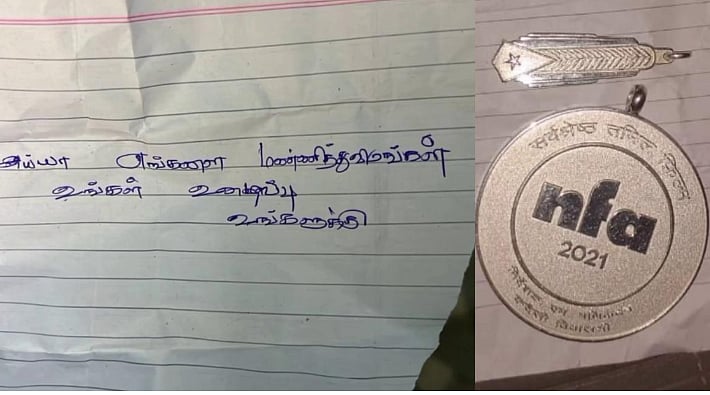 அய்யா எங்களை மன்னித்துவிடுங்கள்
உங்கள் உழைப்பு
உங்களுக்கு
सर्वश्रेष्ठ तमिल फिल्म
nfa
2021
निर्देशक एम मणिकंदन